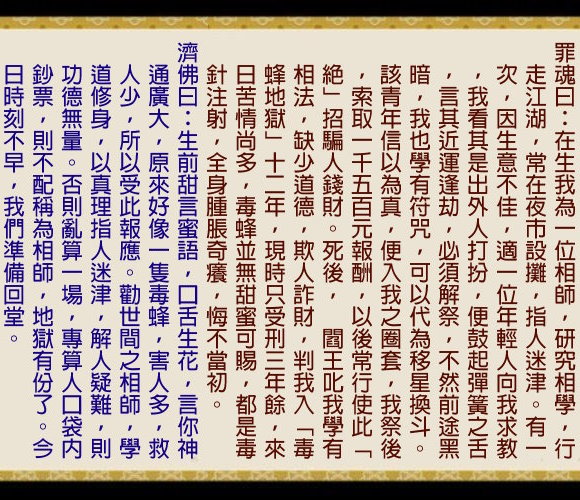 罪魂曰：在生我為一位相師，研究相學，行
走江湖，常在夜市設攤，指人迷津。有一
次，因生意不佳，適一位年輕人向我求教
，我看其是出外人打扮，便鼓起彈簧之舌
，言其近運逢劫，必須解祭，不然前途黑
暗，我也學有符咒，可以代為移星換斗。
該青年信以為真，便入我之圈套，我祭後
，索取一千五百元報酬，以後常行使此「
絕」招騙人錢財。死後，閻王叱我學有
相法，缺少道德，欺人詐財，判我入「毒
蜂地獄」十二年，現時只受刑三年餘，來
日苦情尚多，毒蜂並無甜蜜可賜，都是毒
針注射，全身腫脹奇癢，悔不當初。
濟佛曰：生前甜言蜜語，口舌生花，言你神
通廣大，原來好像一隻毒蜂，害人多，救
人少，所以受此報應。勸世間之相師，學
道修身，以真理指人迷津，解人疑難，則
功德無量。否則亂算一場，專算人口袋內
鈔票，則不配稱為相師，地獄有份了。今
日時刻不早，我們準備回堂。